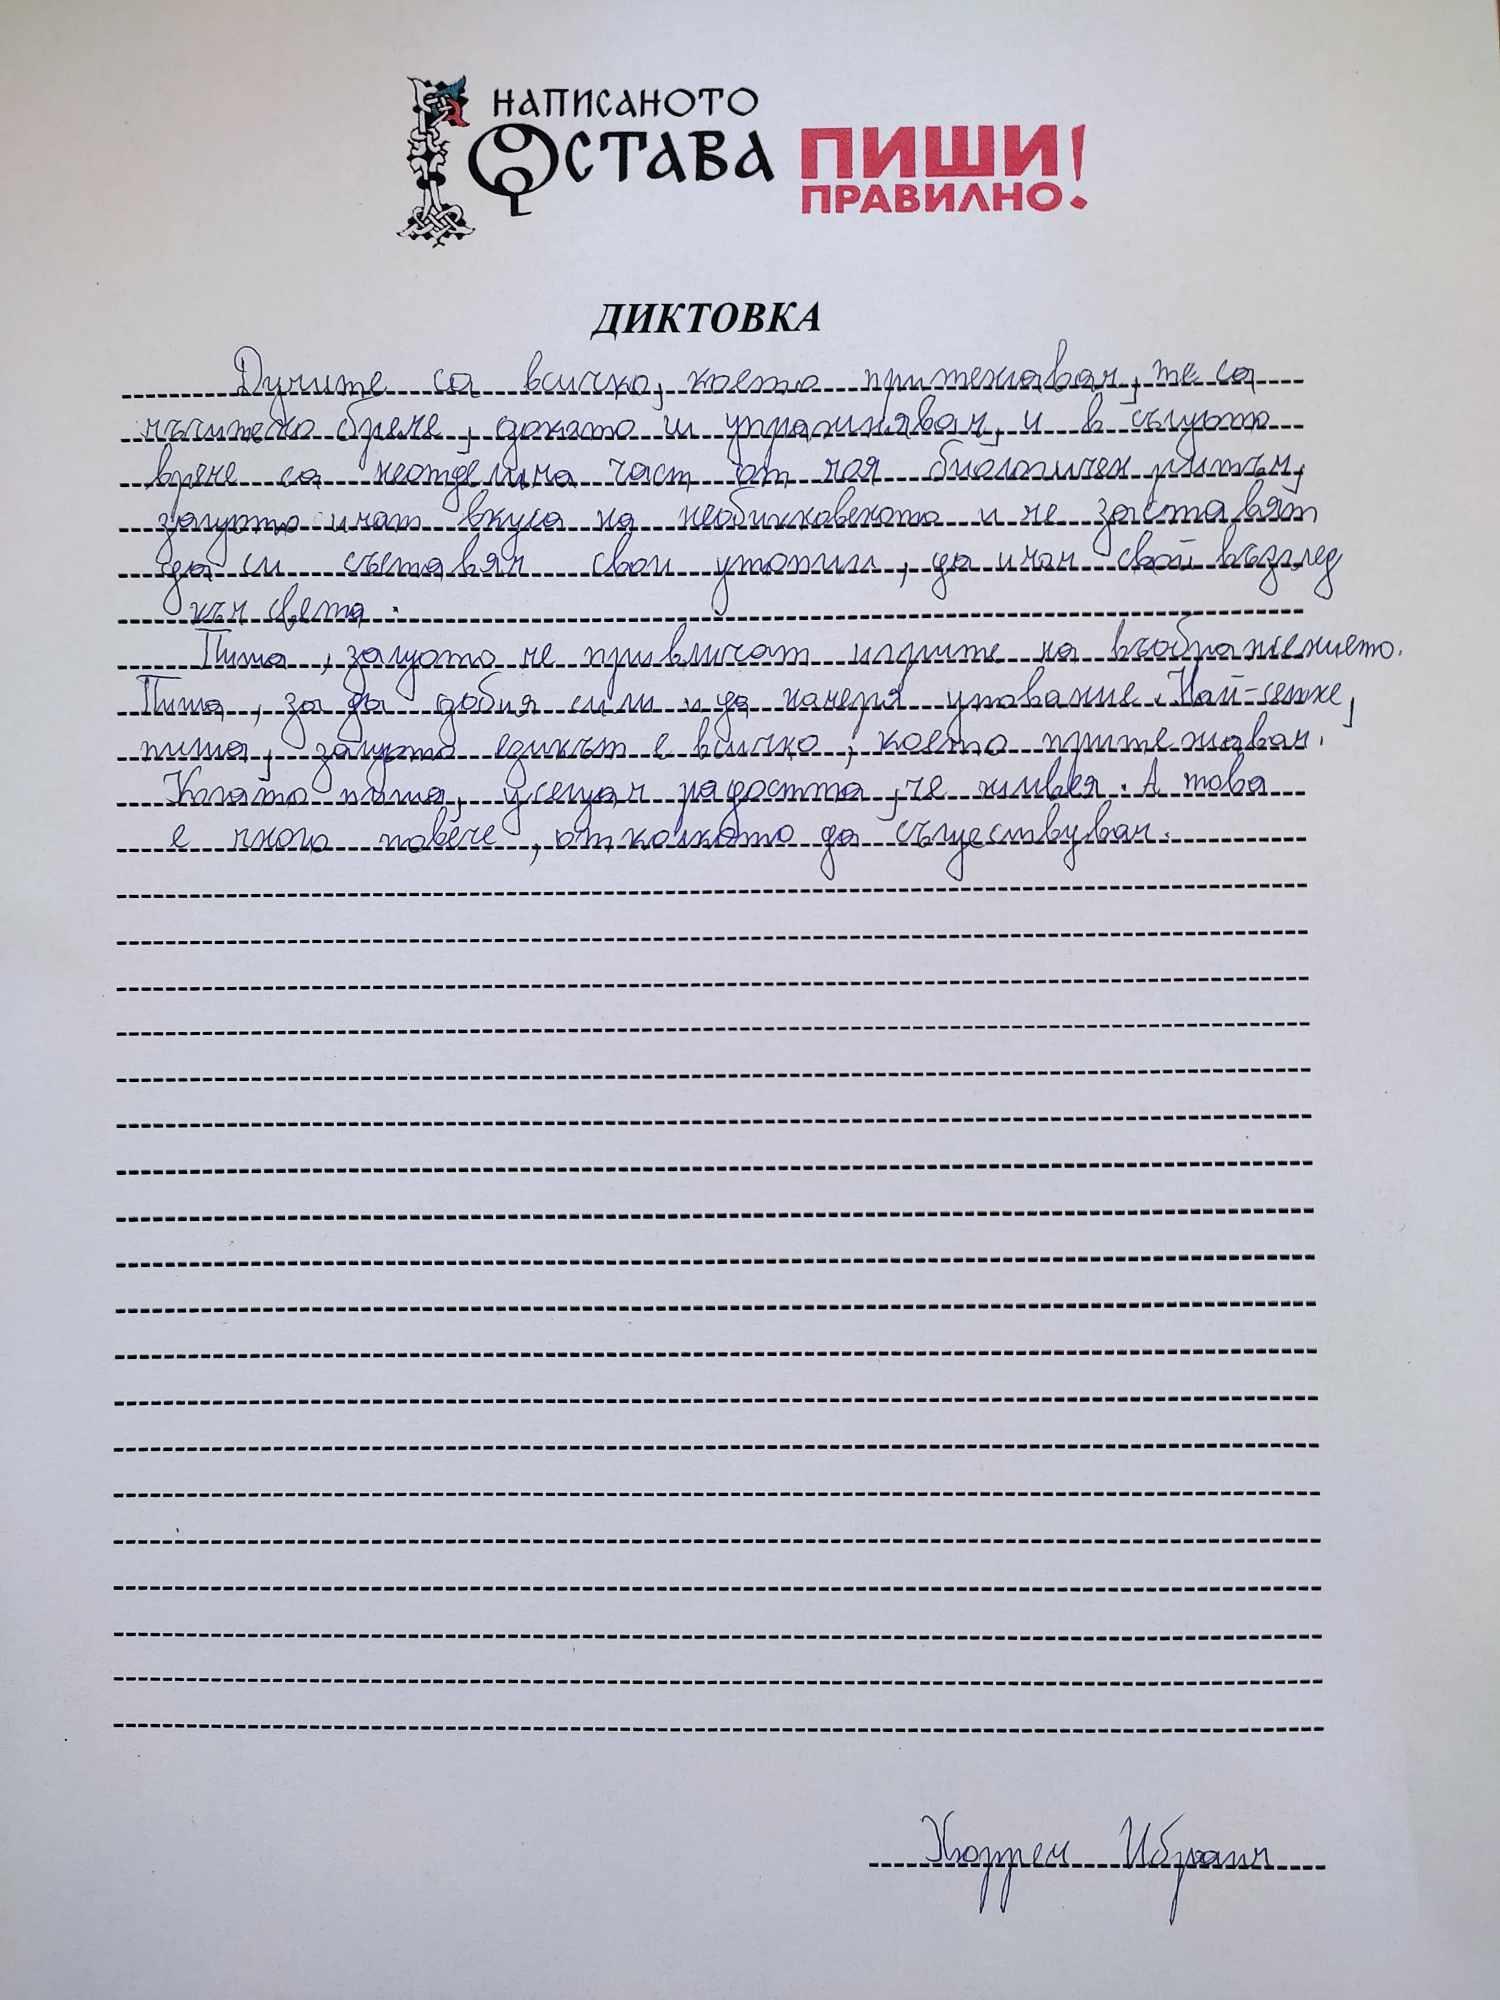 НАПИСАНОТО
ОСТАВА
ПИШИ!
ПРАВИЛНО
ДИКТОВКА
Думите са всичко, което притежавам, те са
мъчително бреме, докато ги упражнявам, и в същото
време са неотделима част от моя биологичен ритъм,
защото имат вкуса на необикновеното и ме заставят
да си съставям свои утопии, да имам свой възглед
към света.
Пиша, защото ме привличат игрите на въображението.
Пиша, за да добия сили и да намеря упование. Най-сетне,
пиша, защото езикът е всичко, което притежавам.
Когато пиша, усещам радостта, че живея. А това
е много повече, отколкото да съществувам.
Ибрям